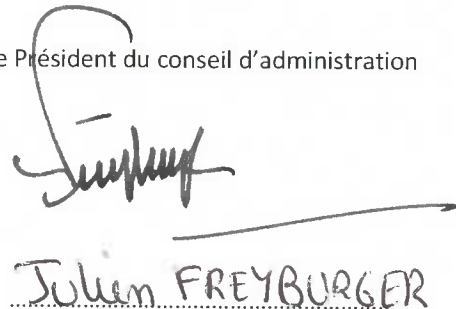 e Président du conseil d'administration
Julien FREYBURGER